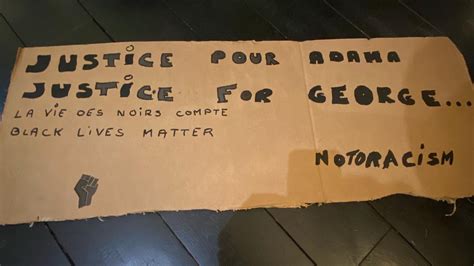 JUSTiCE POUR ADAMA
JUSTiCE FOR GEORGE...
LA ViE DES NOiRS COMPTE
BLACK LiVES MATTER
NOTORACiSM